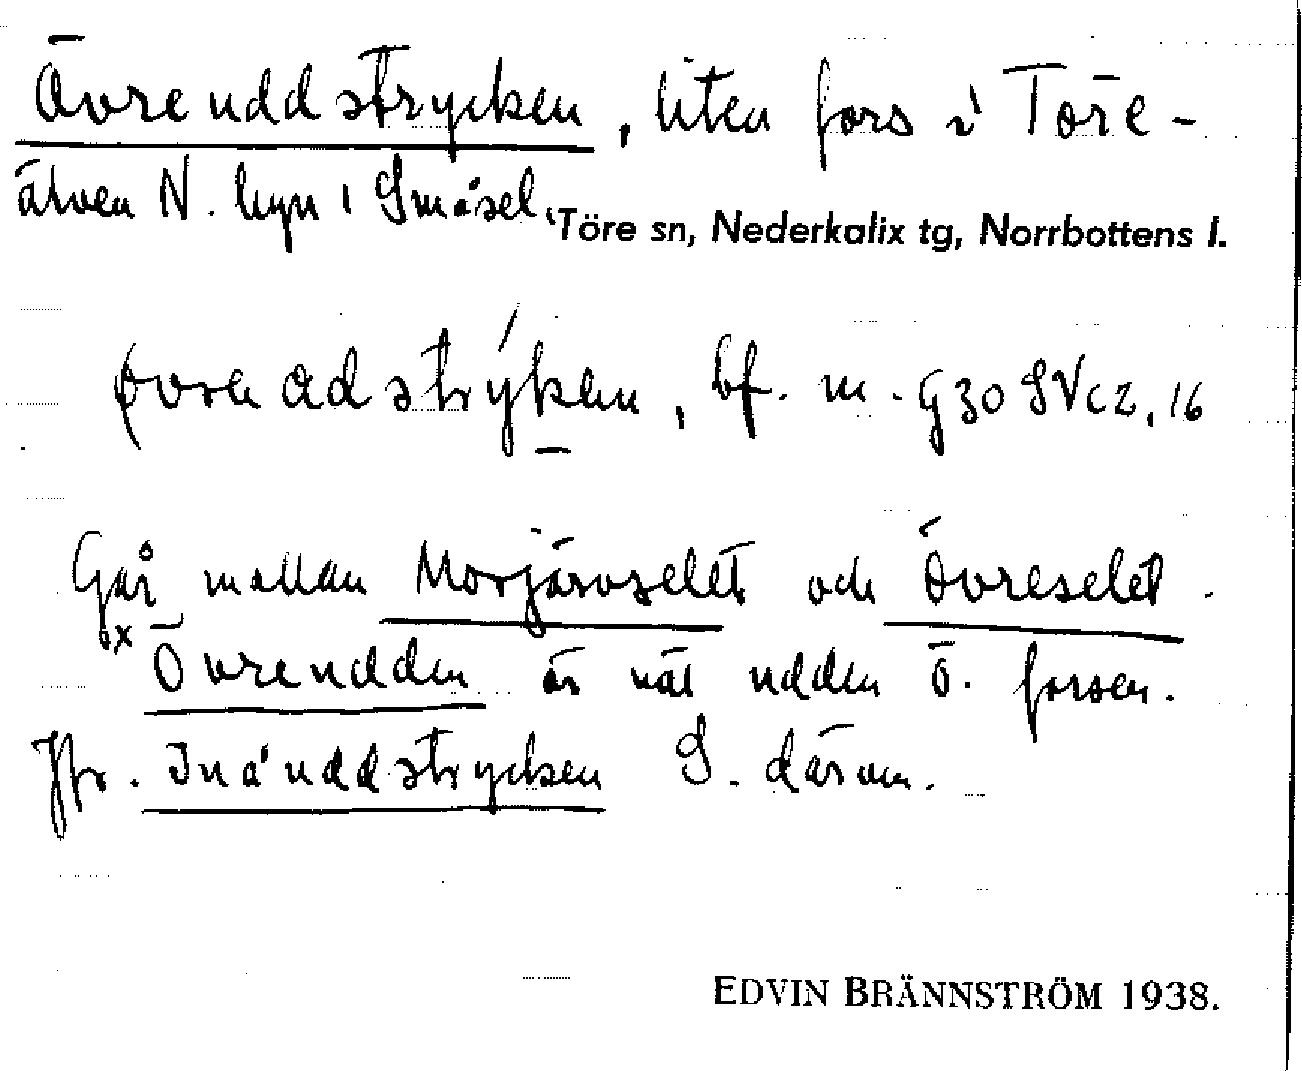 Övreuddstrycken, liten fors i Töre-
älven N. byn i Småsel. Töre sn, Nederkalix tg, Norrbottens l.
bf. m. G30 SVc2, 16
Går mellan Morjärvselet och Övreselet.
x Övreudden är näs udden ö. forsen.
Jfr. Småuddstrycken S. därom.
EDVIN BRÄNNSTRÖM 1938.